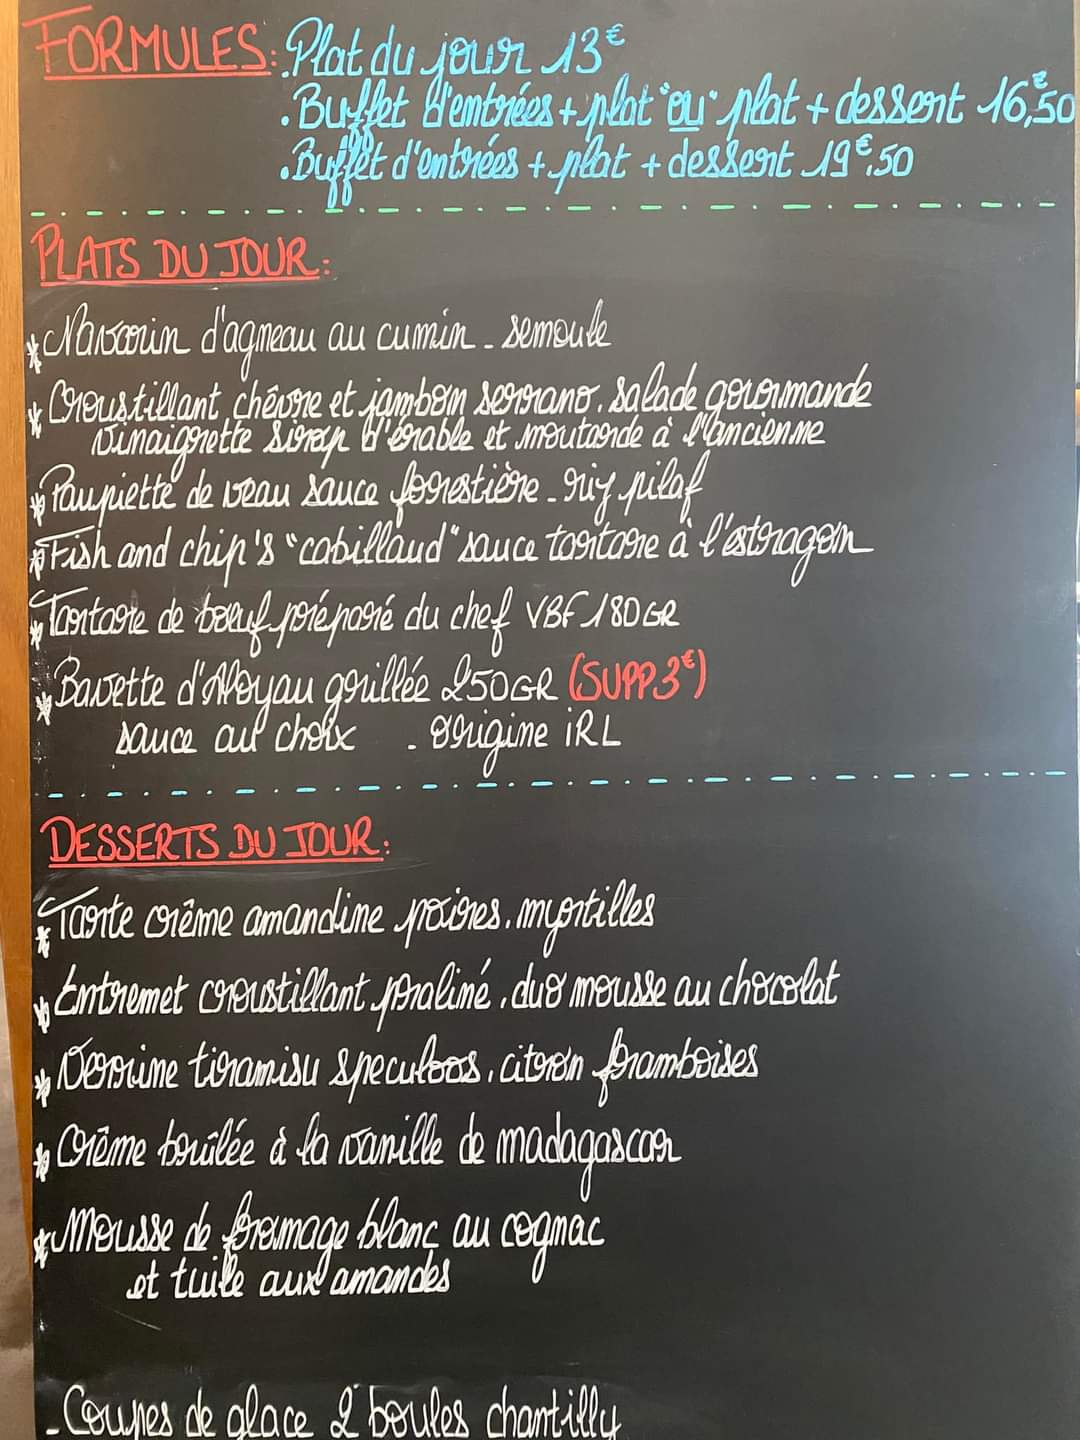 FORMULES: .Plat du jour 13€
.Buffet d'entrées + plat "ou" plat + dessert 16,€50
.Buffet d'entrées + plat + dessert 19€,50
PLATS DU JOUR:
* Navarin d'agneau au cumin - semoule
* Croustillant chèvre et jambon serrano, salade gourmande
vinaigrette sirop d'érable et moutarde à l'ancienne
* Paupiette de veau sauce forestière - riz pilaf
* Fish and chip's "cabillaud" sauce tartare à l'estragon
* Tartare de bœuf préparé du chef VBF 180GR
* Bavette d'Aloyau grillée 250GR (SUPP 3€)
sauce au choix - origine iRL
DESSERTS DU JOUR:
* Tarte crème amandine poires, myrtilles
* Entremet croustillant praliné, duo mousse au chocolat
* Verrine tiramisu speculoos, citron framboises
* Crème brûlée à la vanille de madagascar
* Mousse de fromage blanc au cognac
et tuile aux amandes
- Coupes de glace 2 boules chantilly